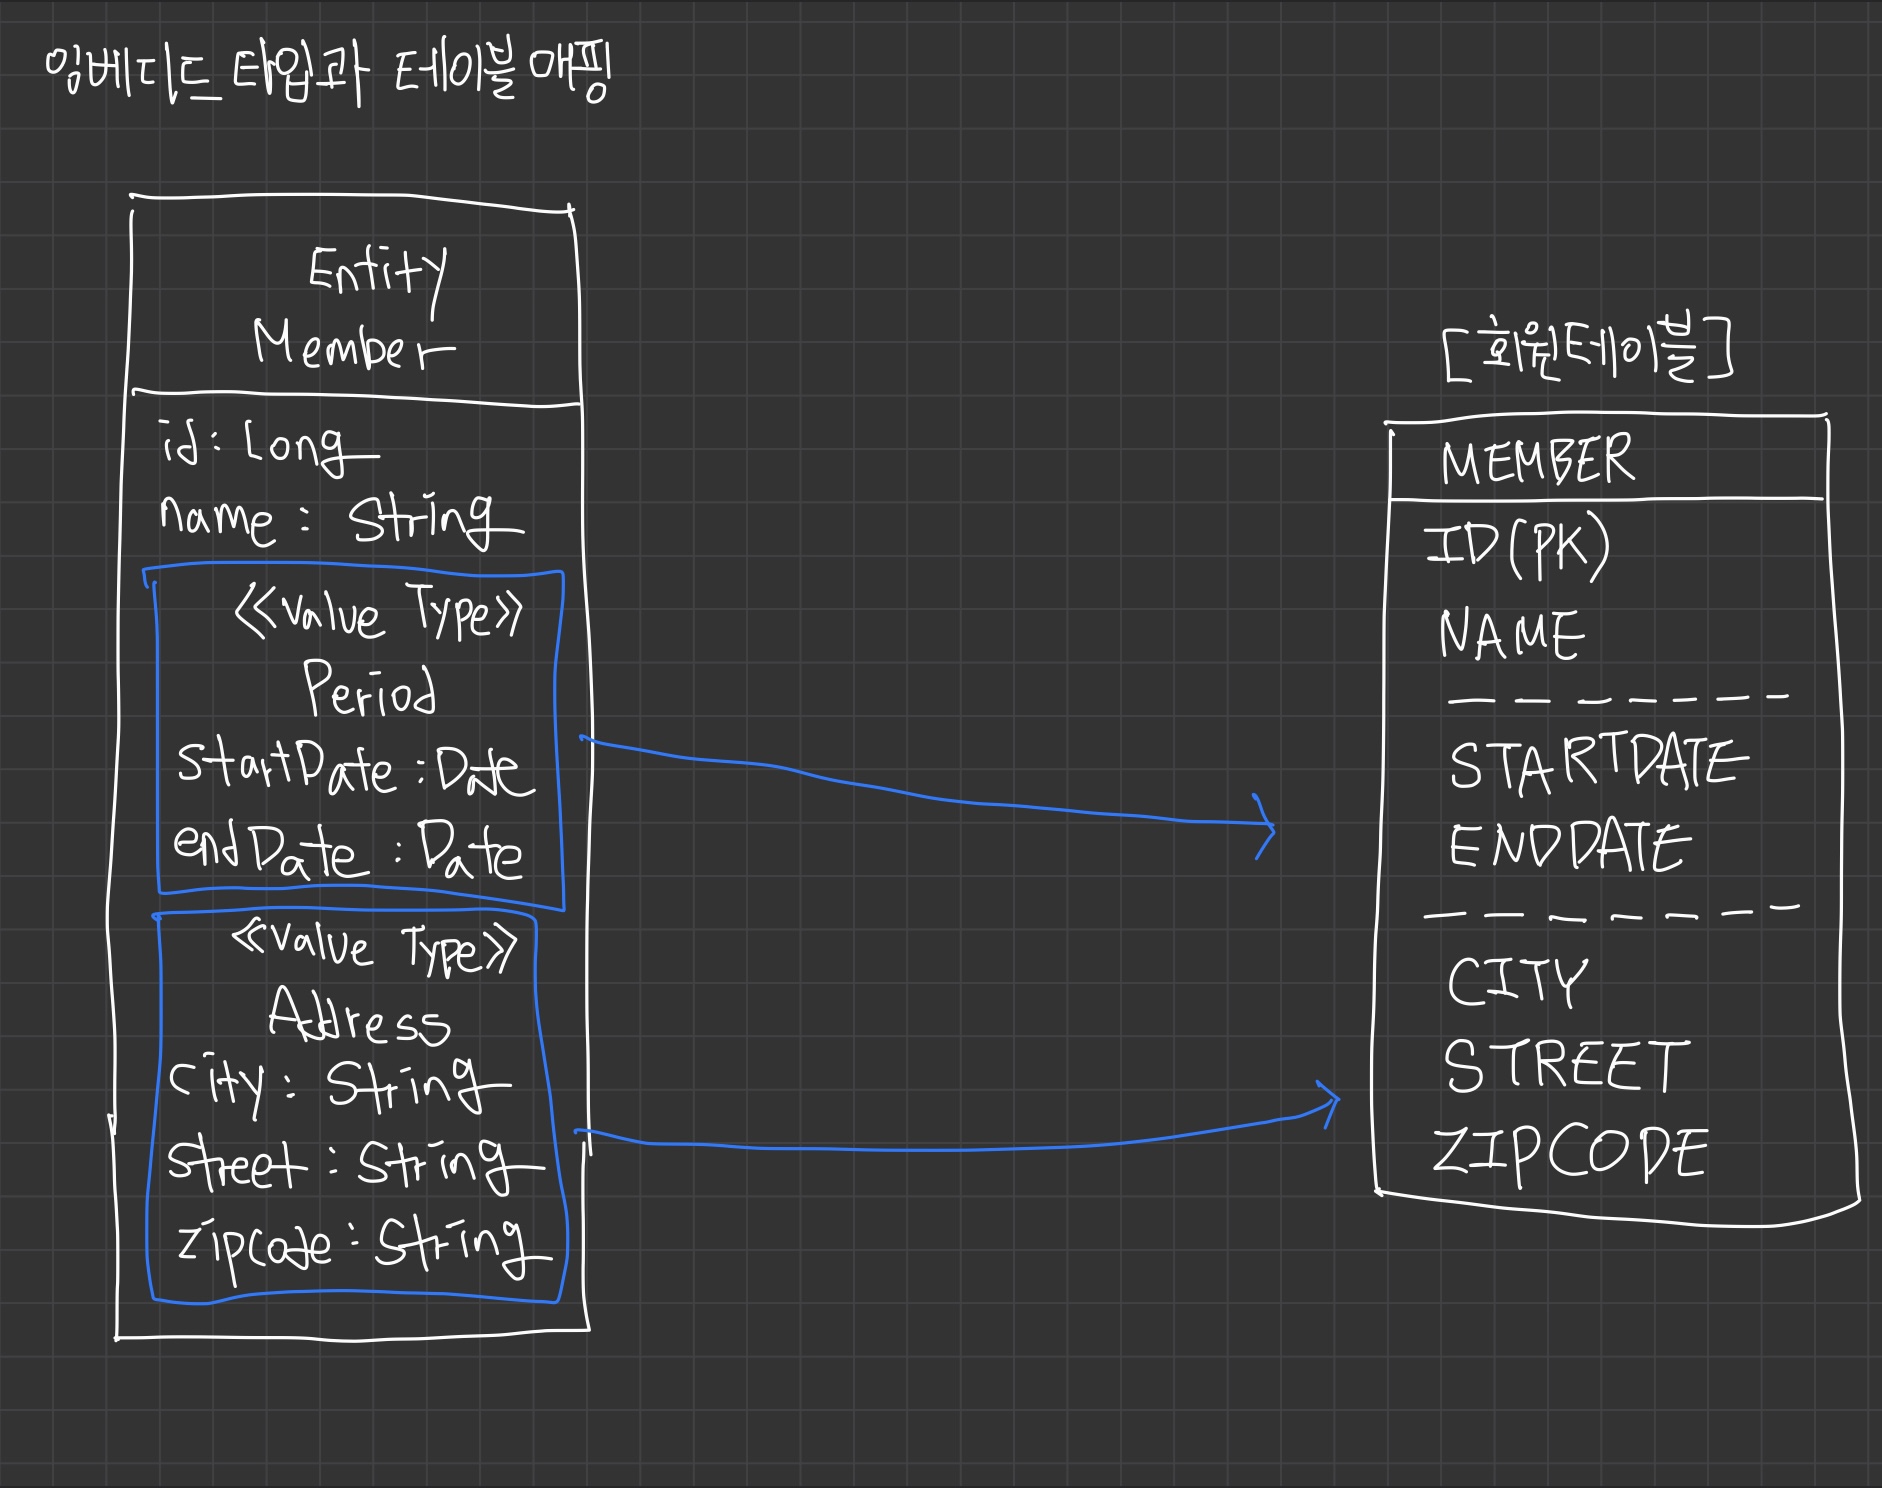 임베디드 타입과 테이블 매핑
Entity
Member
id: Long
name: String
《Value Type》
Period
startDate: Date
endDate: Date
《Value Type》
Address
city: String
street: String
zipcode: String
[회원테이블]
MEMBER
ID(PK)
NAME
STARTDATE
ENDDATE
CITY
STREET
ZIPCODE